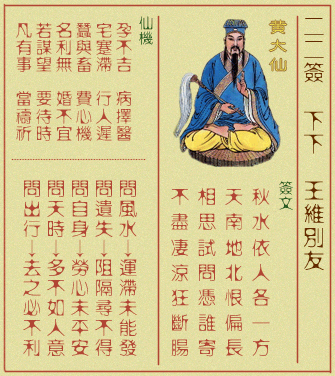 二二簽 下下 王維別友
黃大仙
簽文
秋水依人各一方
天南地北恨偏長
相思試問憑誰寄
不盡凄涼狂斷腸
仙機
孕不吉 病擇醫
宅蹇滯 行人遲
蠶與畜 費心機
名利無 婚不宜
若謀望 要待時
凡有事 當禱祈
問風水→運滯未能發
問遺失→阻隔尋不得
問自身→勞心未平安
問天時→多不如人意
問出行→去之必不利